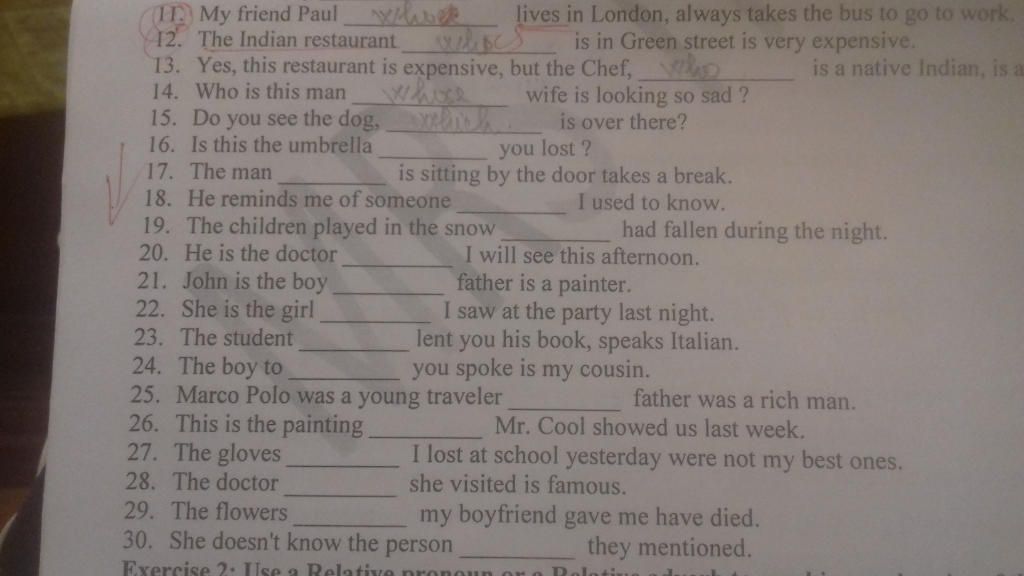 11. My friend Paul whose lives in London, always takes the bus to go to work.
12. The Indian restaurant is in Green street is very expensive.
13. Yes, this restaurant is expensive, but the Chef, who is a native Indian, is a
14. Who is this man whose wife is looking so sad ?
15. Do you see the dog, which is over there?
16. Is this the umbrella __________ you lost ?
17. The man __________ is sitting by the door takes a break.
18. He reminds me of someone __________ I used to know.
19. The children played in the snow __________ had fallen during the night.
20. He is the doctor __________ I will see this afternoon.
21. John is the boy __________ father is a painter.
22. She is the girl __________ I saw at the party last night.
23. The student __________ lent you his book, speaks Italian.
24. The boy to __________ you spoke is my cousin.
25. Marco Polo was a young traveler __________ father was a rich man.
26. This is the painting __________ Mr. Cool showed us last week.
27. The gloves __________ I lost at school yesterday were not my best ones.
28. The doctor __________ she visited is famous.
29. The flowers __________ my boyfriend gave me have died.
30. She doesn't know the person __________ they mentioned.
Exercise 2: Use a Relative pronoun or a Relative